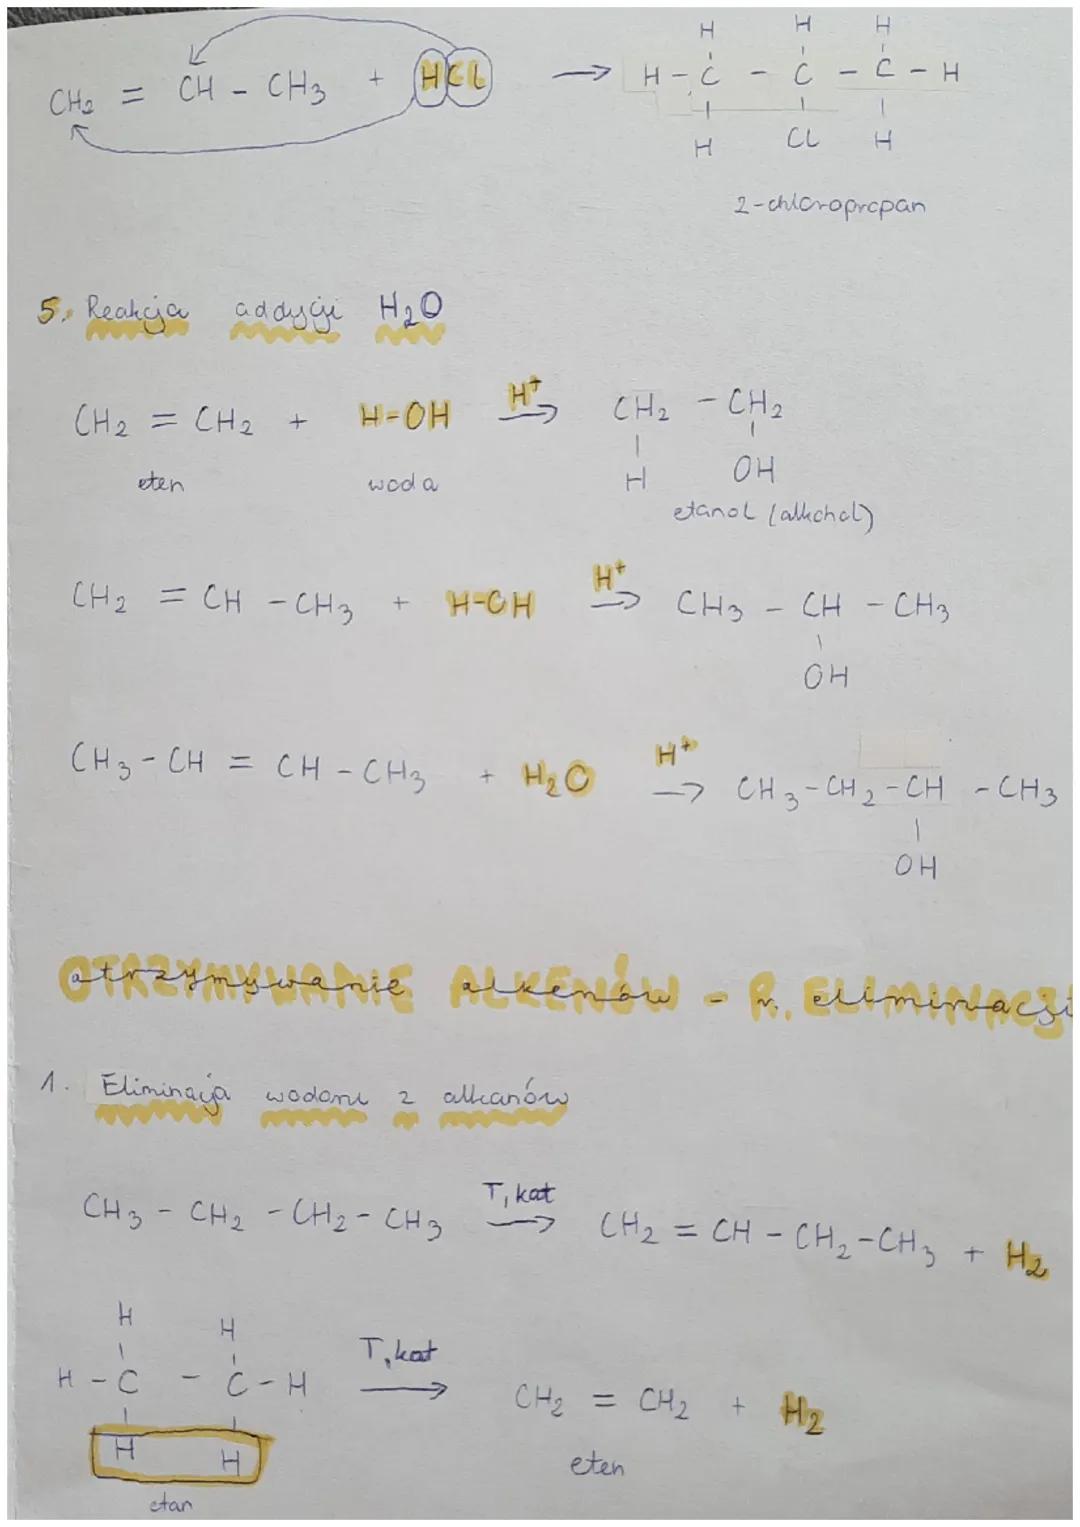 H H H
CH2 = CH - CH3 + HCl → H - C - C - C - H
H Cl H
2-chloropropan
5. Reakcja addycji H2O
CH2 = CH2 + H-OH H+ → CH2 - CH2
H OH
eten woda
etanol (alkohol)
CH2 = CH - CH3 + H-OH H+ → CH3 - CH - CH3
OH
CH3 - CH = CH - CH3 + H2O H+ → CH3 - CH2 - CH - CH3
OH
OTRZYMYWANIE ALKENÓW - R. ELIMINACJI
1. Eliminacja wodoru z alkanów
CH3 - CH2 - CH2 - CH3 T, kat → CH2 = CH - CH2 - CH3 + H2
H H
H - C - C - H T, kat → CH2 = CH2 + H2
H H
etan eten